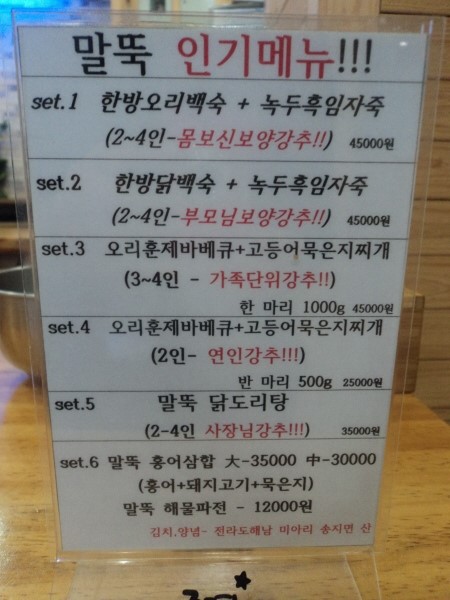 말뚝 인기메뉴!!!
set.1 한방오리백숙 + 녹두흑임자죽
(2~4인-몸보신보양강추!!) 45000원
set.2 한방닭백숙 + 녹두흑임자죽
(2~4인-부모님보양강추!!) 45000원
set.3 오리훈제바베큐+고등어묵은지찌개
(3~4인 - 가족단위강추!!)
한 마리 1000g 45000원
set.4 오리훈제바베큐+고등어묵은지찌개
(2인- 연인강추!!!)
반 마리 500g 25000원
set.5 말뚝 닭도리탕
(2-4인 사장님강추!!!) 35000원
set.6 말뚝 홍어삼합 大-35000 中-30000
(홍어+돼지고기+묵은지)
말뚝 해물파전 - 12000원
김치.양념- 전라도해남 미아리 송지면 산